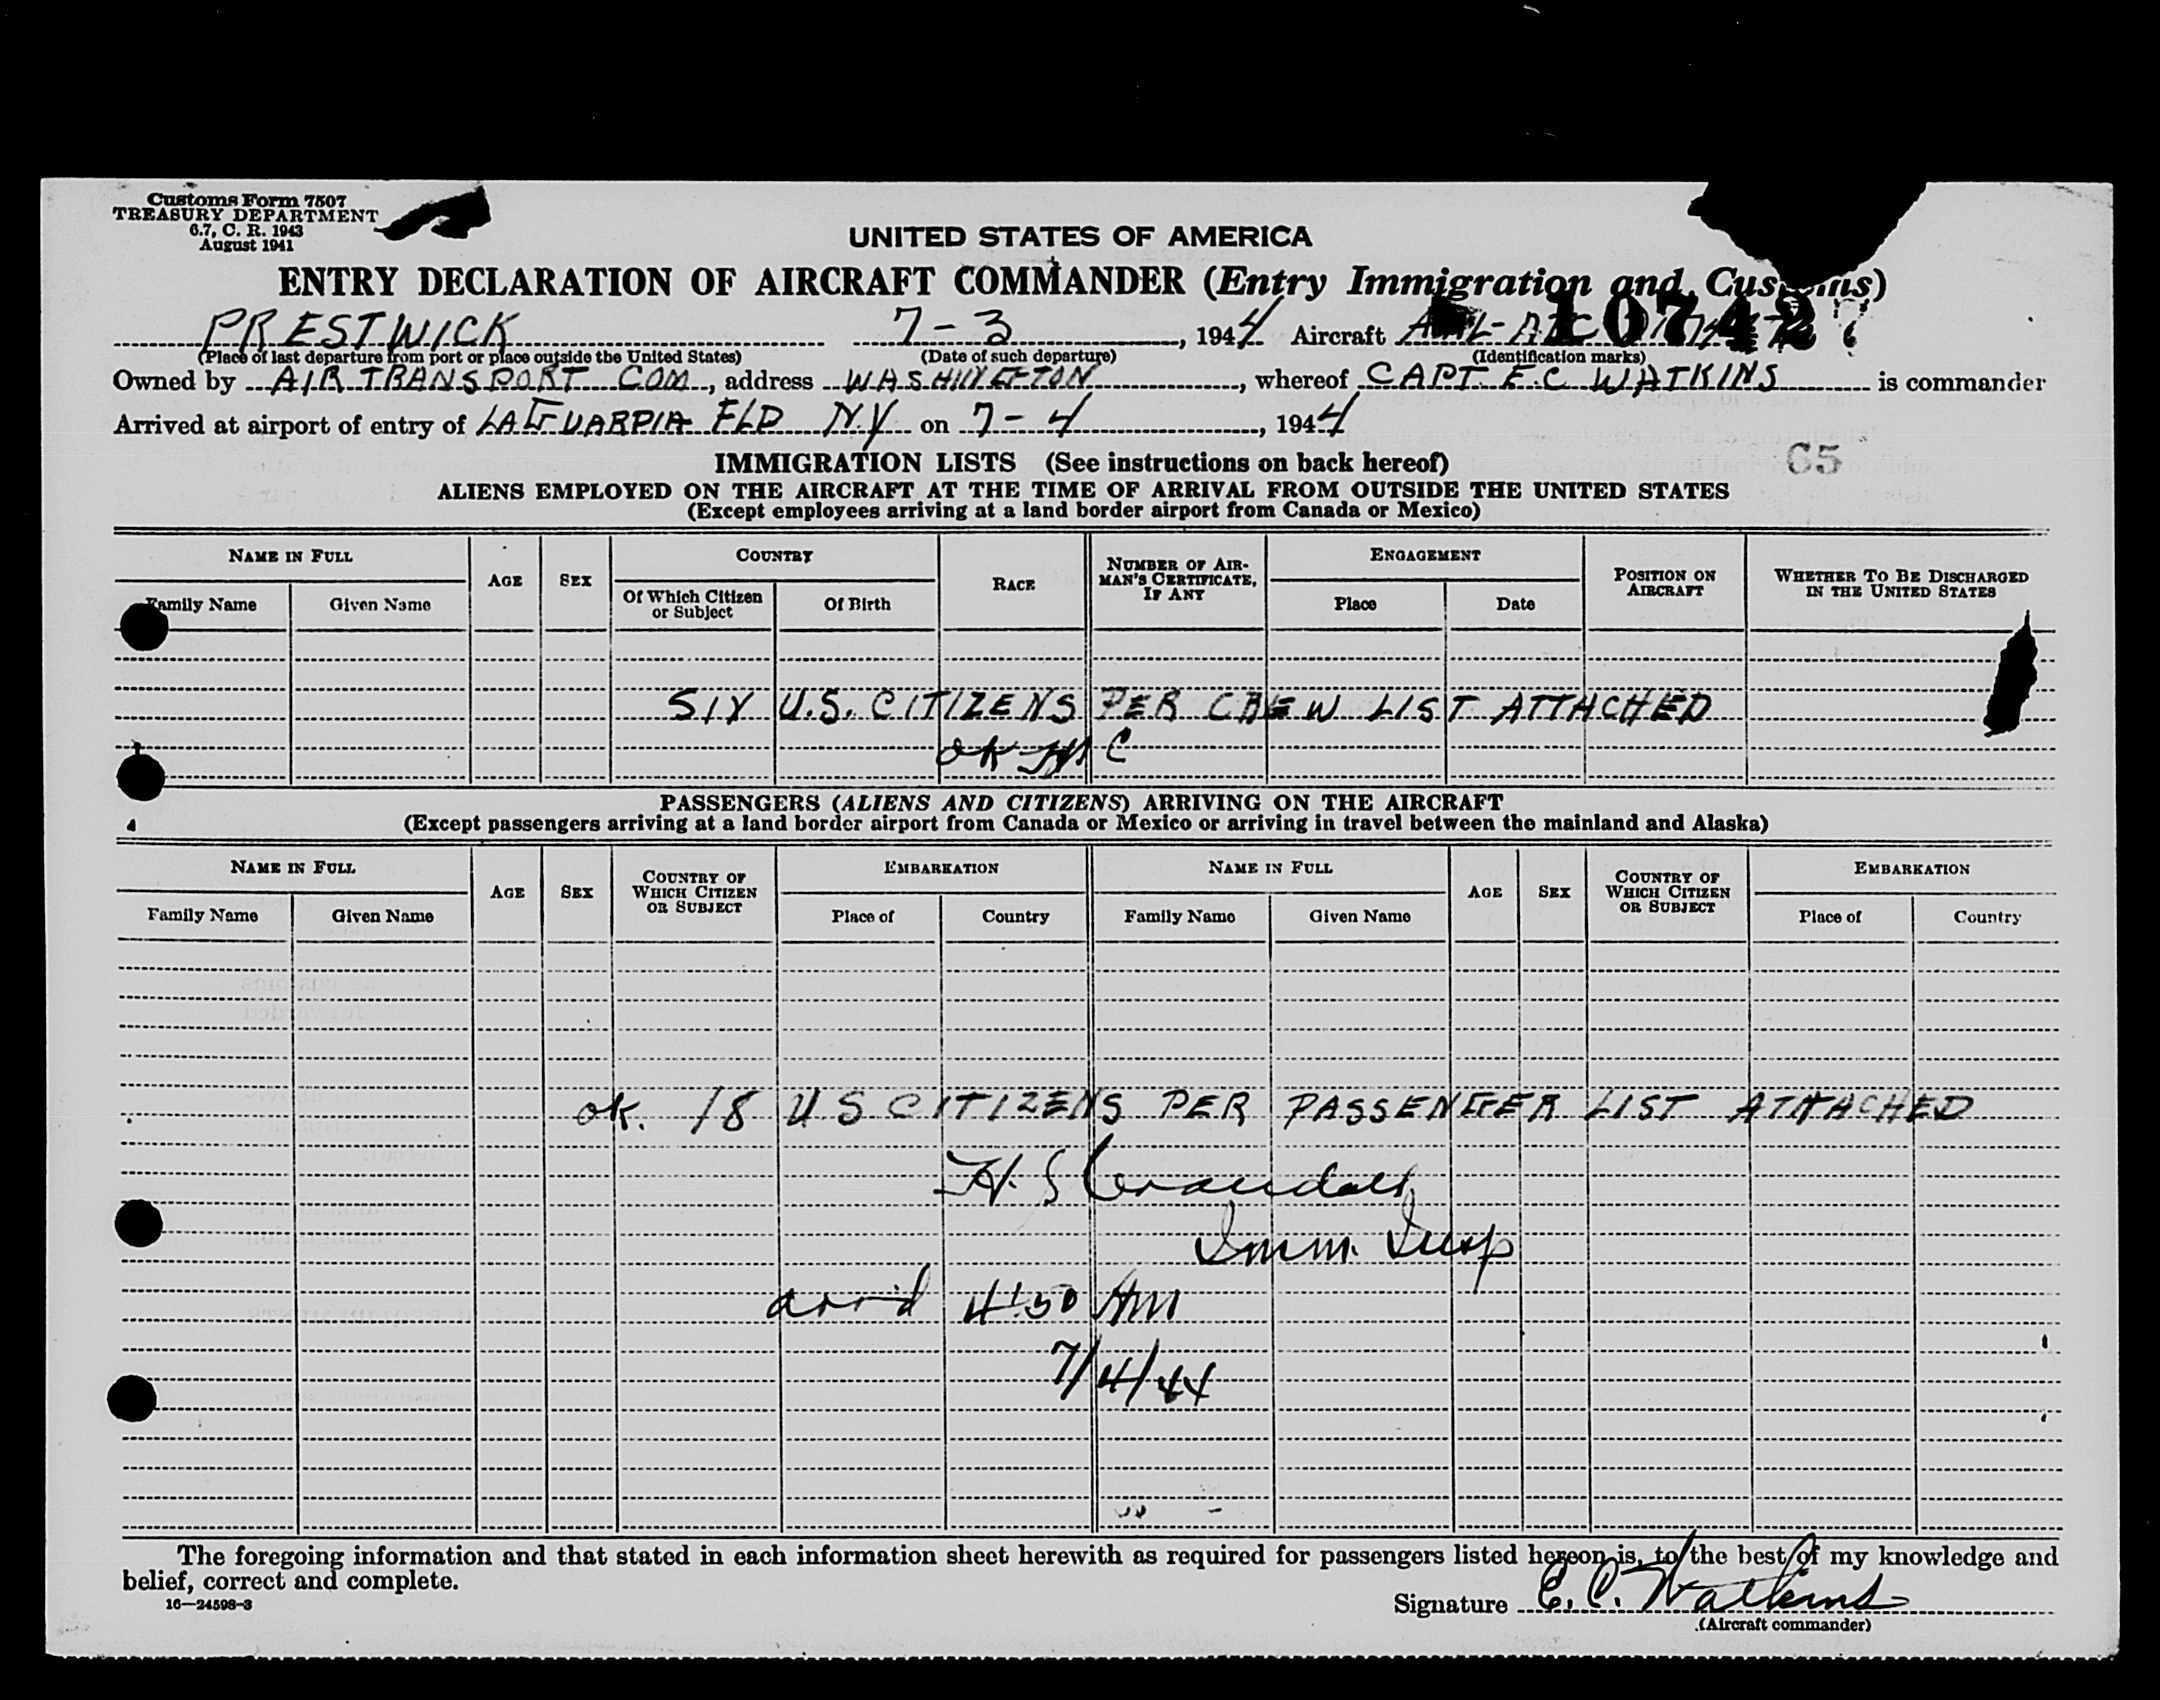 Customs Form 7507
TREASURY DEPARTMENT
6.7, C. R. 1943
August 1941
UNITED STATES OF AMERICA
ENTRY DECLARATION OF AIRCRAFT COMMANDER (Entry Immigration and Customs)
10742
PRESTWICK 7-3, 1944 Aircraft
(Place of last departure from port or place outside the United States) (Date of such departure) (Identification marks)
Owned by AIR TRANSPORT COM, address WASHINGTON, whereof CAPT. E.C WATKINS is commander
Arrived at airport of entry of LAGUARDIA FLD N.Y on 7-4, 1944
65
IMMIGRATION LISTS (See instructions on back hereof)
ALIENS EMPLOYED ON THE AIRCRAFT AT THE TIME OF ARRIVAL FROM OUTSIDE THE UNITED STATES
(Except employees arriving at a land border airport from Canada or Mexico)
NAME IN FULL AGE SEX COUNTRY RACE NUMBER OF AIRMAN'S CERTIFICATE, IF ANY ENGAGEMENT POSITION ON AIRCRAFT WHETHER TO BE DISCHARGED IN THE UNITED STATES
Family Name Given Name Of Which Citizen or Subject Of Birth Place Date
SIX U.S. CITIZENS PER CREW LIST ATTACHED
OK
PASSENGERS (ALIENS AND CITIZENS) ARRIVING ON THE AIRCRAFT
(Except passengers arriving at a land border airport from Canada or Mexico or arriving in travel between the mainland and Alaska)
NAME IN FULL AGE SEX COUNTRY OF WHICH CITIZEN OR SUBJECT EMBARKATION NAME IN FULL AGE SEX COUNTRY OF WHICH CITIZEN OR SUBJECT EMBARKATION
Family Name Given Name Place of Country Family Name Given Name Place of Country
OK. 18 U S CITIZENS PER PASSENGER LIST ATTACHED
H. S Crandall
Imm. Insp
arr'd 4:50 AM
7/4/44
The foregoing information and that stated in each information sheet herewith as required for passengers listed hereon is, to the best of my knowledge and
belief, correct and complete.
16—24598-3
Signature E. C. Watkins
(Aircraft commander)